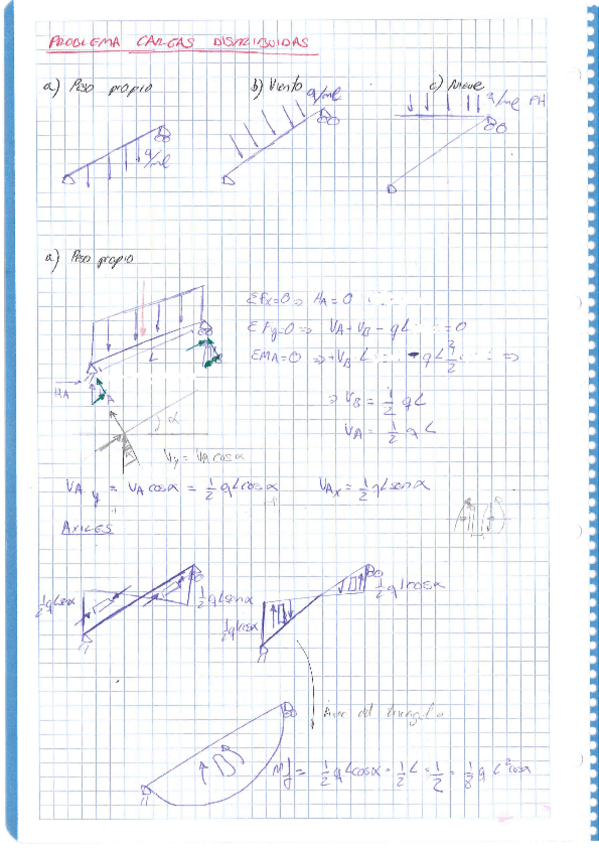 PROBLEMA CARGAS DISTRIBUIDAS
a) Peso propio
b) Viento
c) Nieve
q/ml
q/ml
q/ml PH
a) Peso propio
ΣFx=0 ⇒ HA = 0
ΣFy=0 ⇒ VA+VB - qL = 0
ΣMA=0 ⇒ +VB L - qL²/2 ⇒
⇒ VB = 1/2 qL
VA = 1/2 qL
L
HA
α
Vy = VA cosα
VAy = VA cosα = 1/2 qL cosα
VAx = 1/2 qL senα
AXILES
1/2 qL senα
1/2 qL senα
1/2 qL cosα
1/2 qL cosα
Área del triangulo
Mf = 1/2 qL cosα · 1/2 L · 1/2 = 1/8 q L² cosα